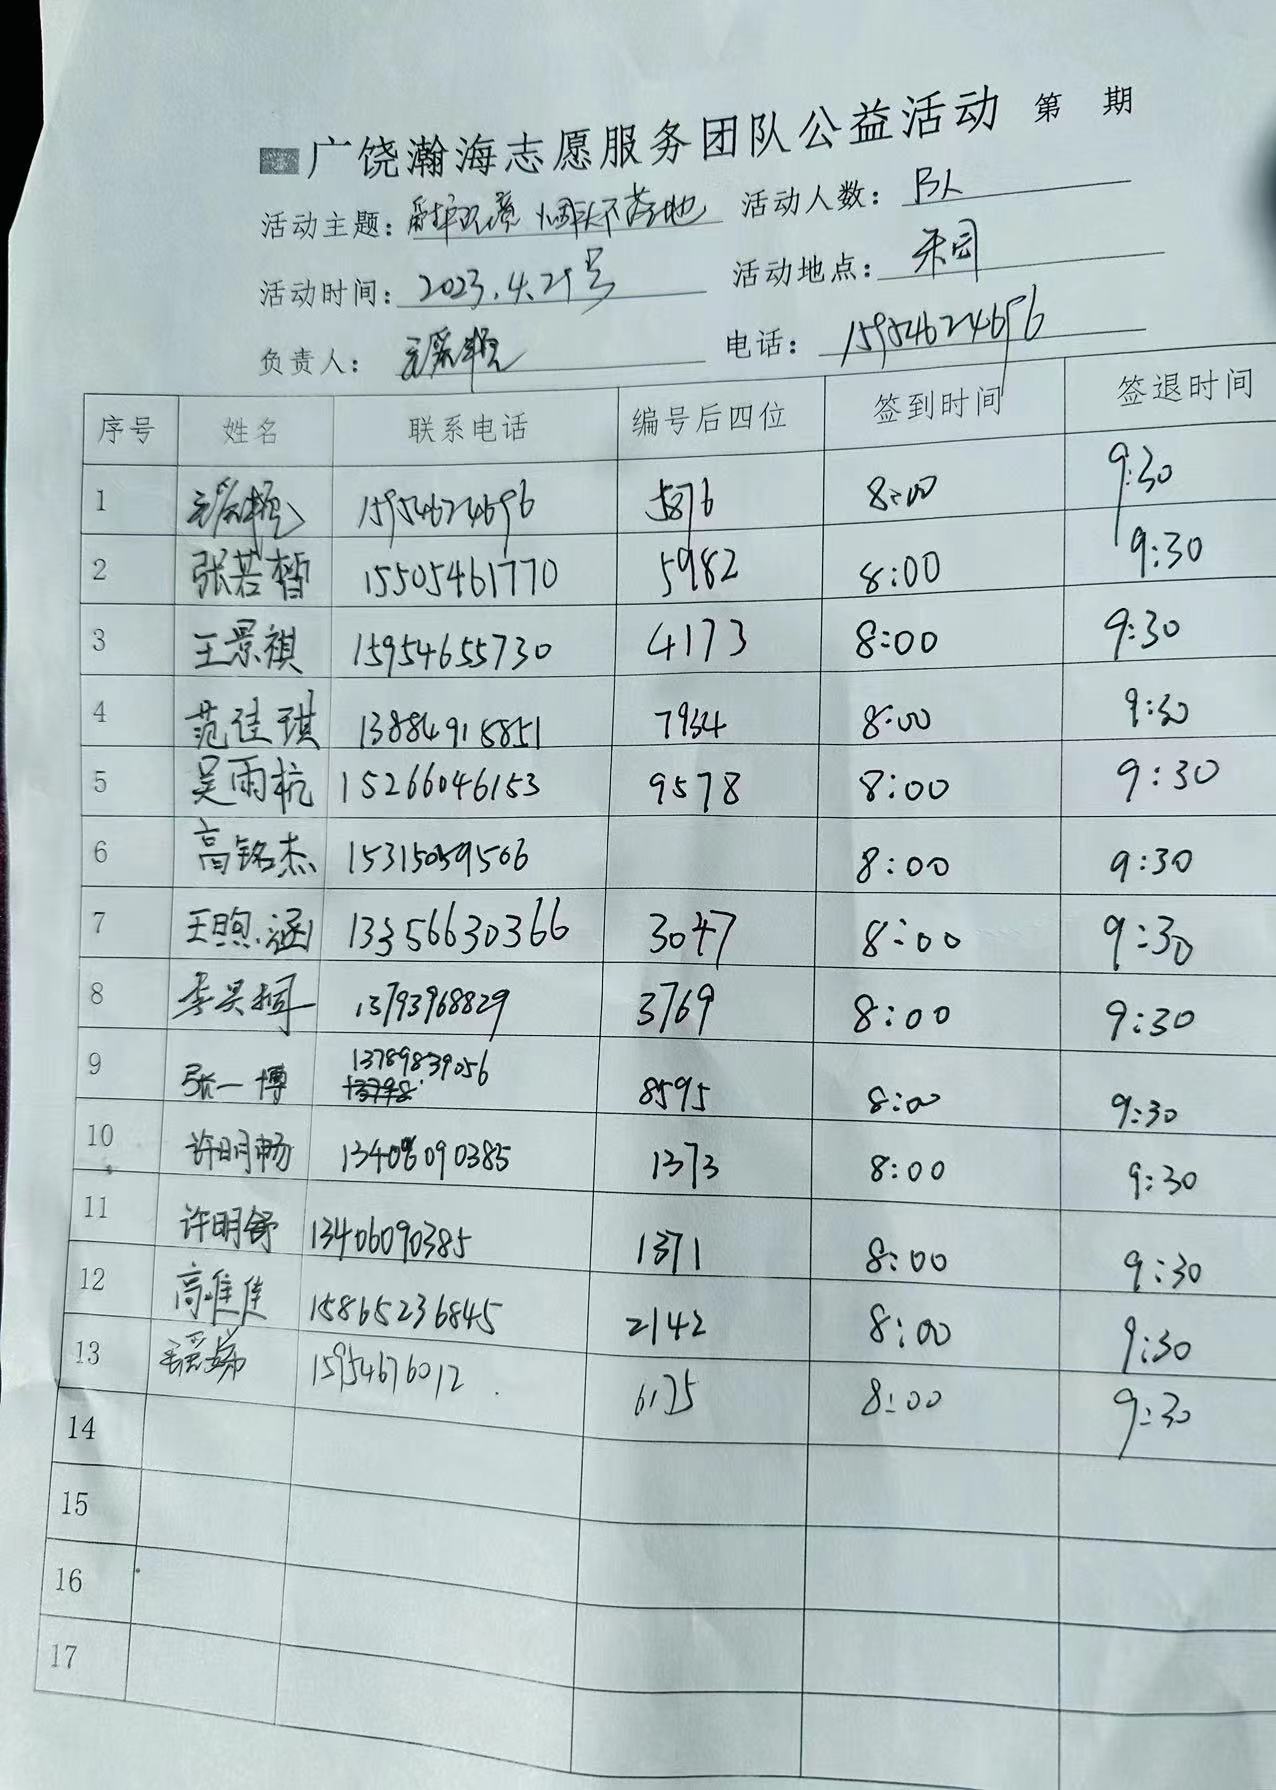 广饶瀚海志愿服务团队公益活动 第 期
活动主题: 爱护环境 烟头不落地 活动人数: 13人
活动时间: 2023.4.29号 活动地点: 乐园
负责人: 电话: 15954624696
序号 姓名 联系电话 编号后四位 签到时间 签退时间
1 15954624696 5876 8:00 9:30
2 张若皙 15505461770 5982 8:00 9:30
3 王景祺 15954655730 4173 8:00 9:30
4 范佳琪 13884915851 7934 8:00 9:30
5 吴雨杭 15266046153 9578 8:00 9:30
6 高铭杰 15315059506 8:00 9:30
7 王煦涵 13356630366 3047 8:00 9:30
8 李昊桐 13793968829 3769 8:00 9:30
9 张一博 13789839056 8595 8:00 9:30
10 许明畅 13406090385 1373 8:00 9:30
11 许明舒 13406090385 1371 8:00 9:30
12 高唯佳 15865236845 2142 8:00 9:30
13 15954676012 6175 8:00 9:30
14
15
16
17